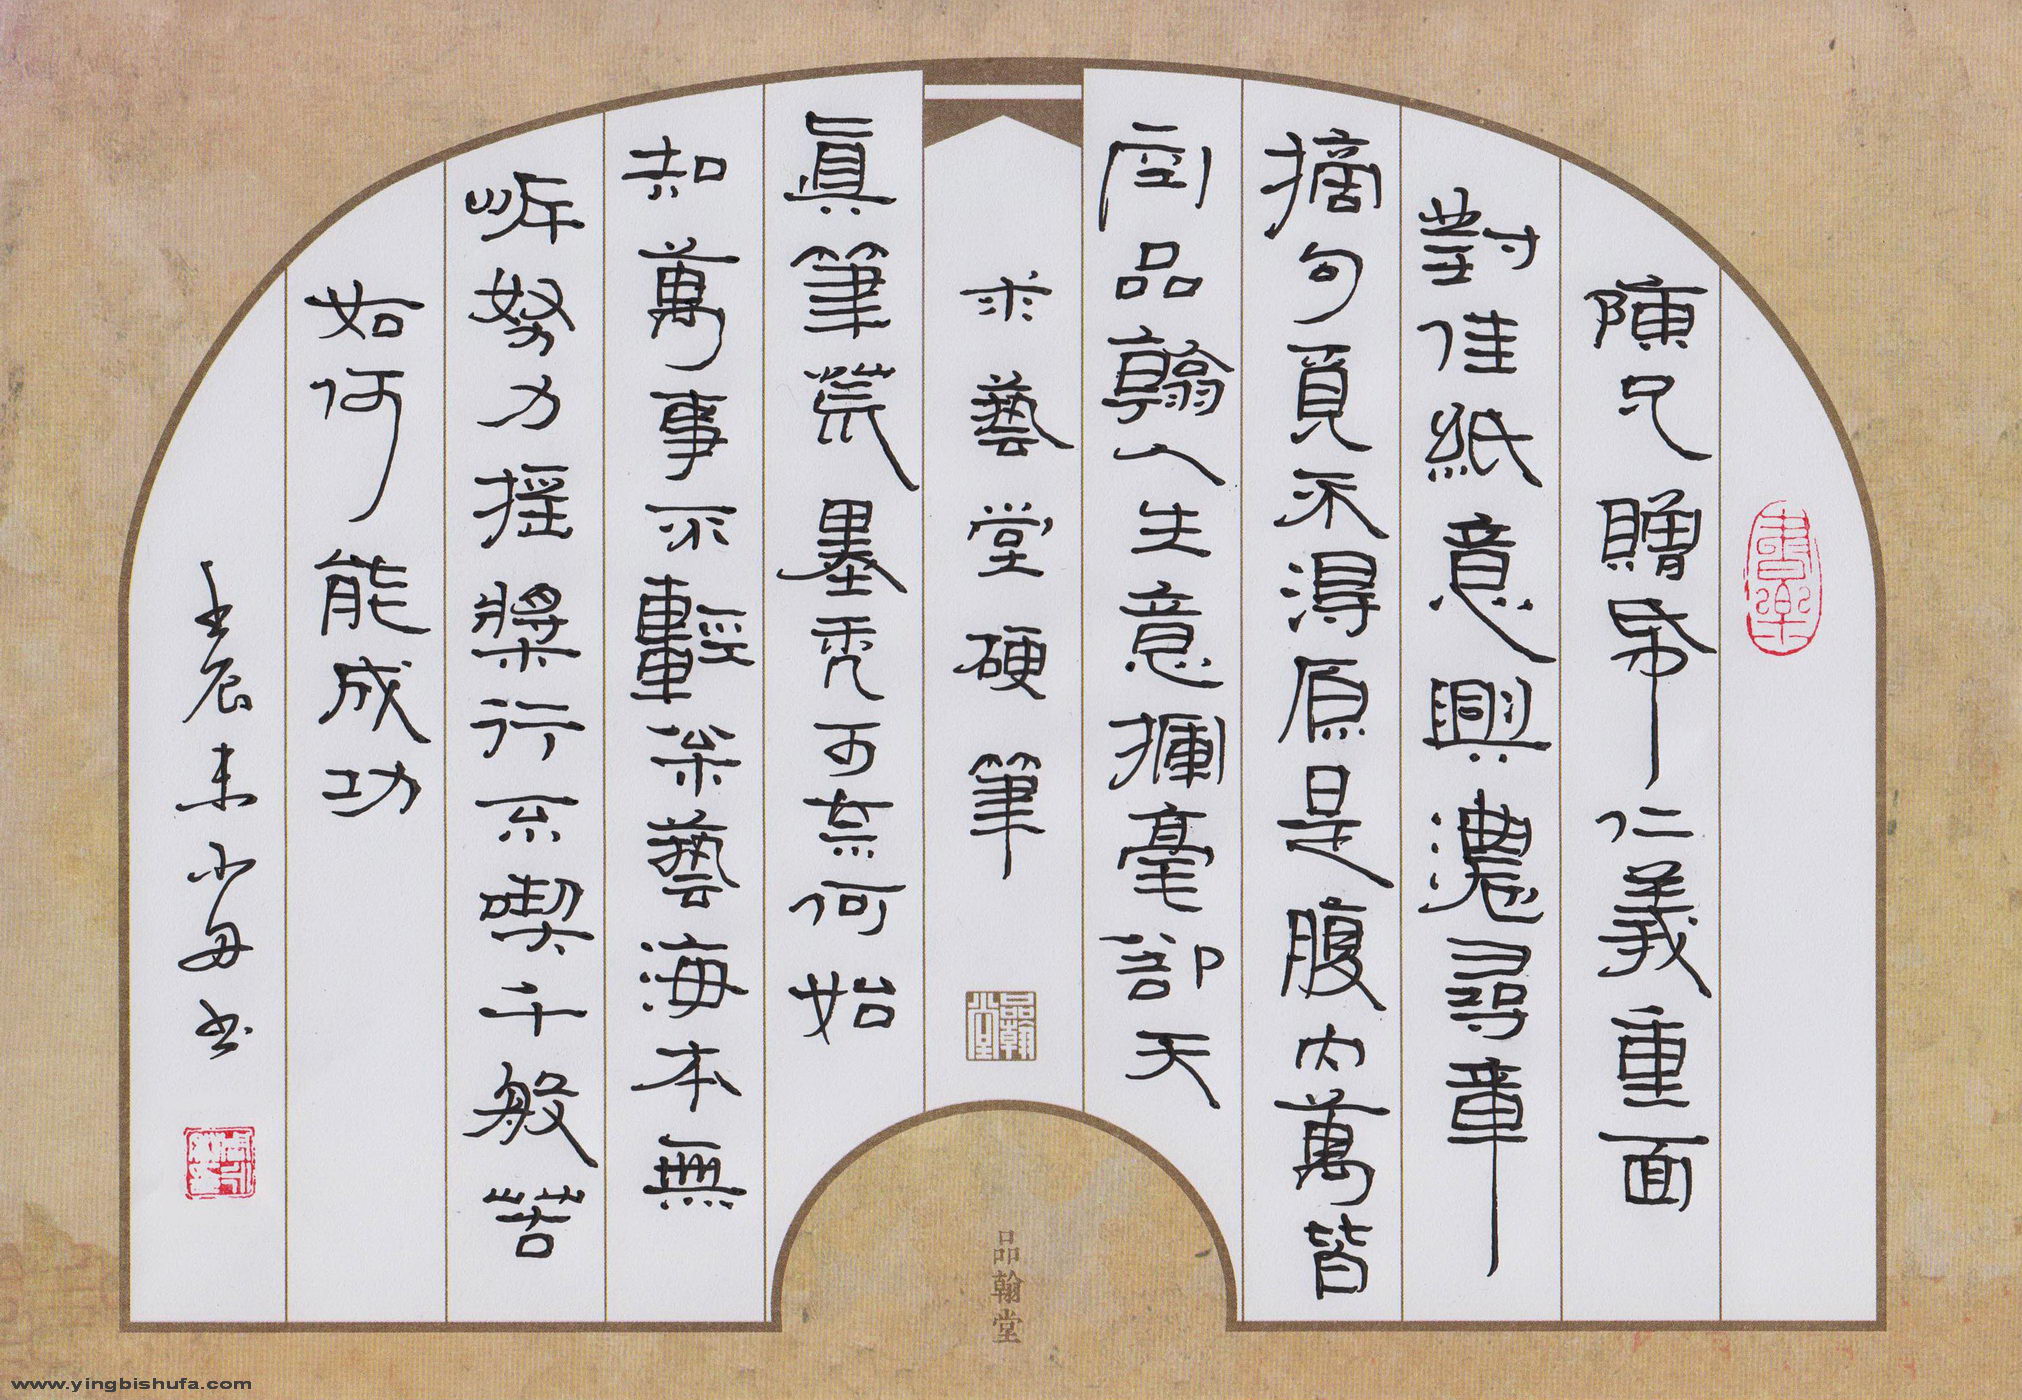 陳兄贈帋仁義重面
對佳紙意興濃尋章
摘句覓不得原是腹內萬皆
空品翰人生意揮毫部天
求藝堂硬筆
品翰堂
真筆荒墨禿可奈何始
知萬事不輕柒藝海本無
岸努力搖槳行不喫千般苦
如何能成功
壬辰末小母书
品翰堂
www.yingbishufa.com